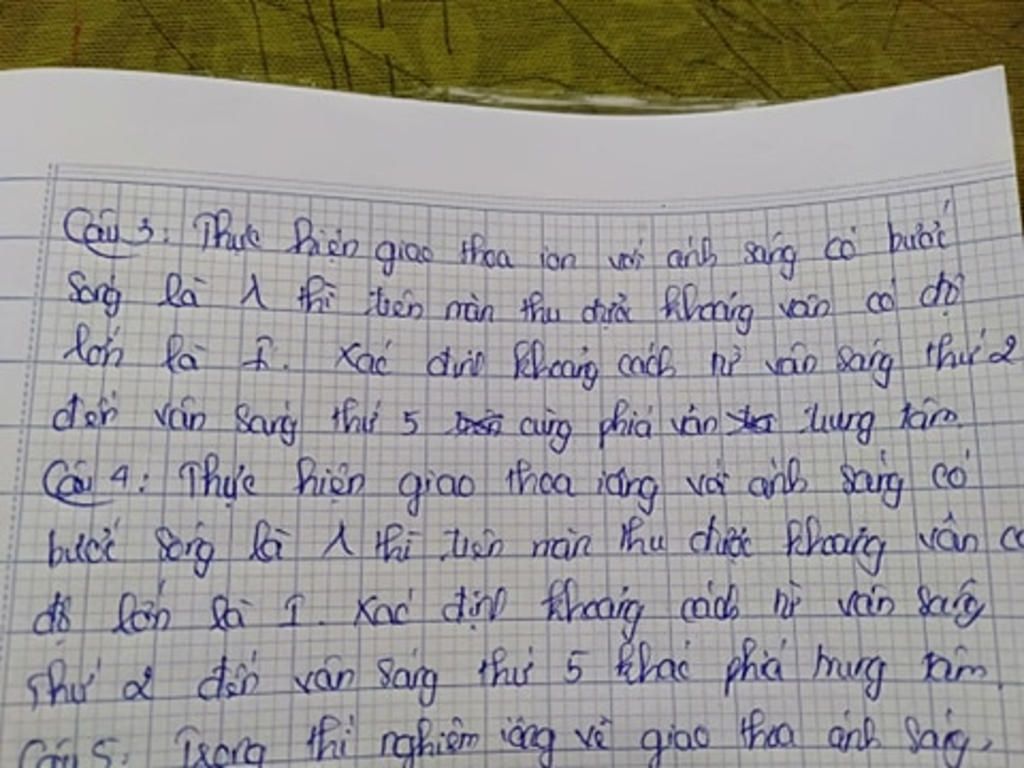 Câu 3: Thực hiện giao thoa ion với ánh sáng có bước
sóng là λ thì trên màn thu được khoảng vân có độ
lớn là I. Xác định khoảng cách từ vân sáng thứ 2
đến vân sáng thứ 5 cùng phía vân trung tâm.
Câu 4: Thực hiện giao thoa iâng với ánh sáng có
bước sóng là λ thì trên màn thu được khoảng vân có
độ lớn là I. Xác định khoảng cách từ vân sáng
thứ 2 đến vân sáng thứ 5 khác phía trung tâm.
Câu 5: Trong thí nghiệm iâng về giao thoa ánh sáng,